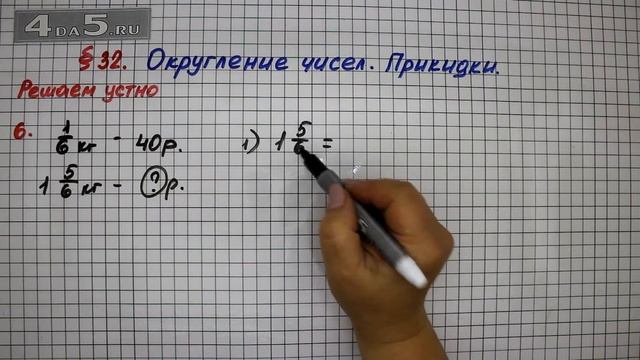 4DA5.RU
§ 32. Округление чисел. Прикидки.
Решаем устно
6. 1/6 кг - 40р.
1 5/6 кг - ? р.
1) 1 5/6 =